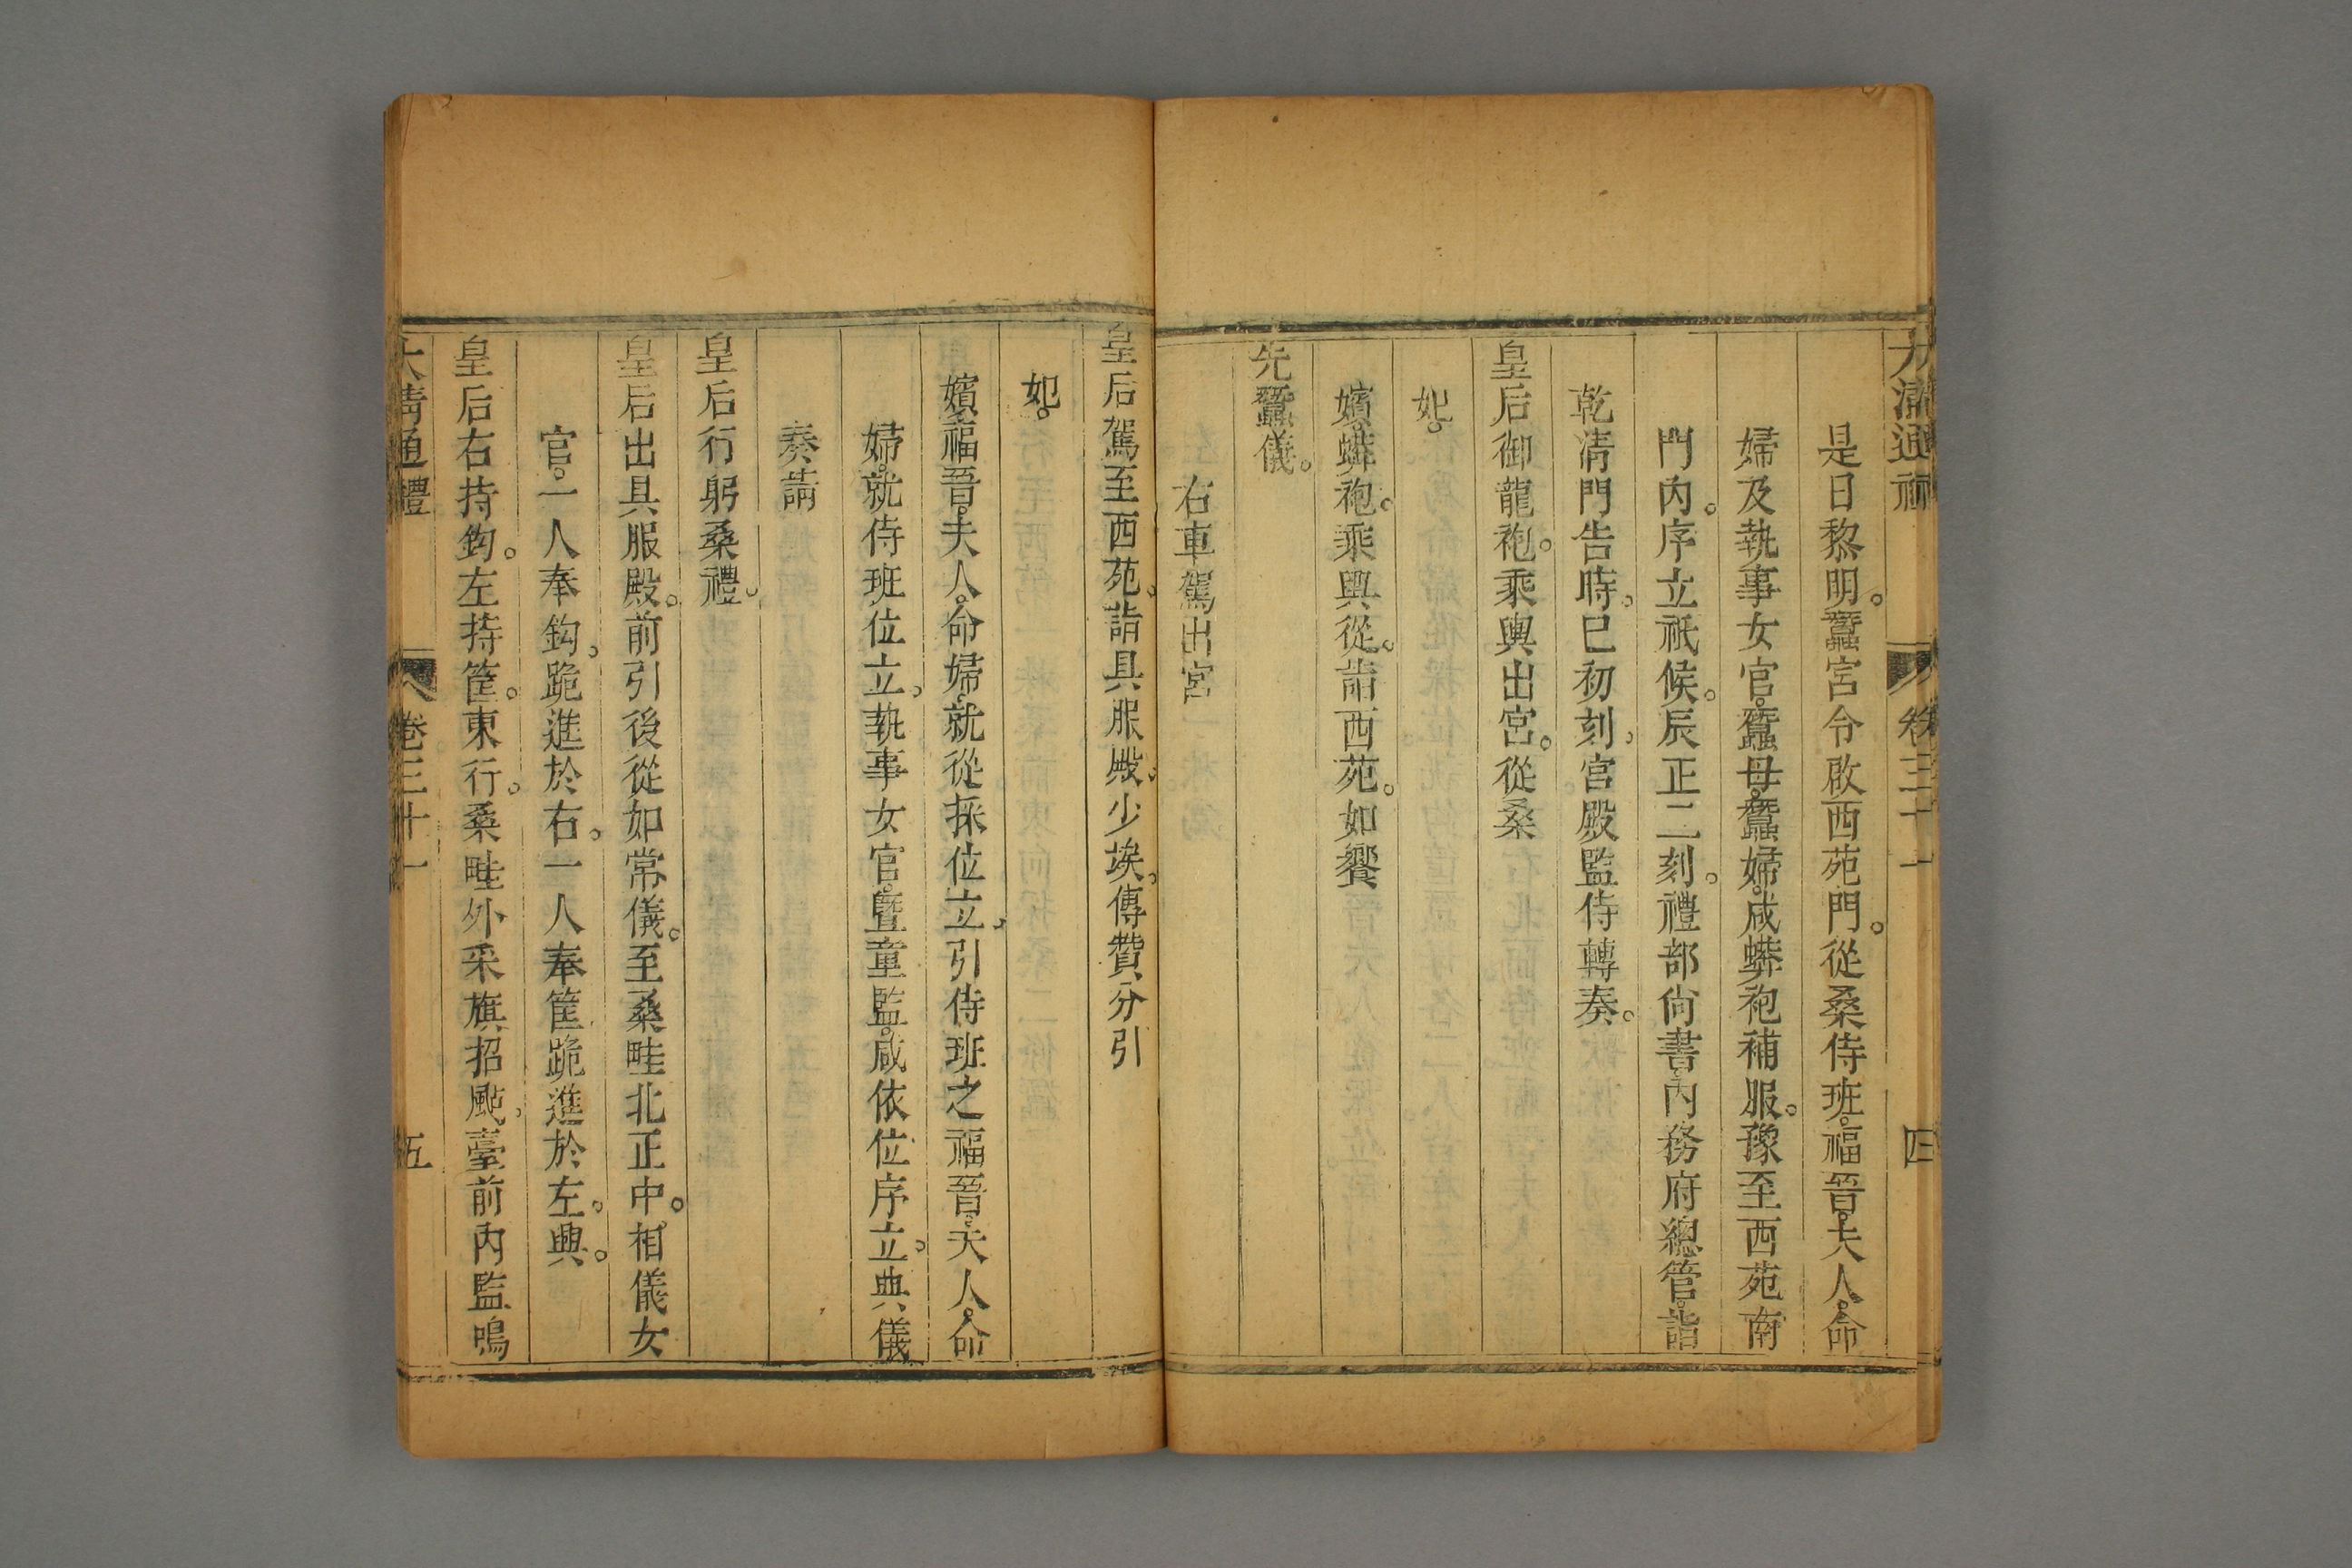 大清通禮 卷三十一 四
是日黎明。蠶宮令啟西苑門。從桑侍班。福晉。夫人。命
婦及執事女官。蠶母。蠶婦。咸蟒袍補服。豫至西苑南
門內。序立祇候。辰正二刻。禮部尚書。內務府總管。詣
乾清門告時。巳初刻。宮殿監侍轉奏。
皇后御龍袍。乘輿出宮。從桑
妃。
嬪。蟒袍。乘輿從。詣西苑。如饗
先蠶儀。
右車駕出宮
皇后駕至西苑。詣具服殿。少竢。傳贊分引
妃。
嬪。福晉。夫人。命婦。就從採位立。引侍班之福晉。夫人。命
婦。就侍班位立。執事女官。暨童監。咸依位序立。典儀
奏請
皇后行躬桑禮。
皇后出具服殿。前引後從如常儀。至桑畦北正中。相儀女
官。一人奉鈎。跪進於右。一人奉筐跪進於左。興。
皇后右持鈎。左持筐。東行。桑畦外采旗招颭。臺前內監鳴
大清通禮 卷三十一 五